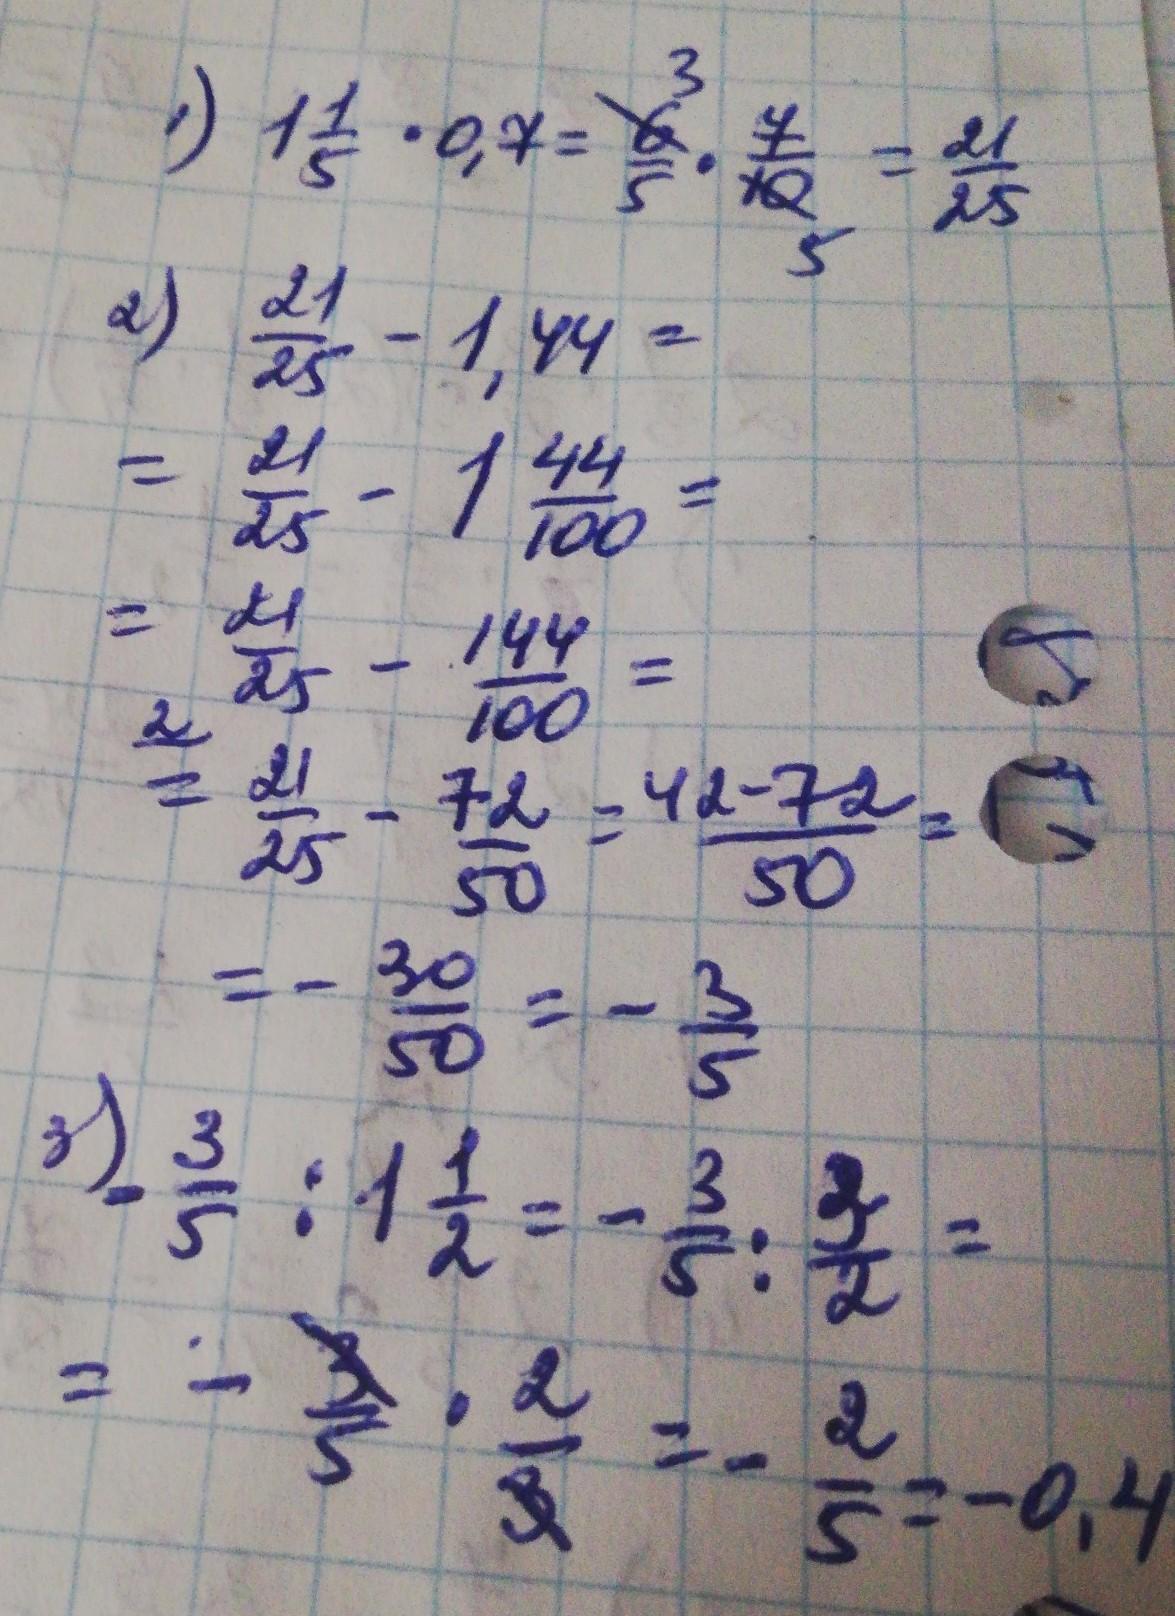 1) 1 1/5 · 0,7 = 6/5 3 · 7/10 5 = 21/25
2) 21/25 - 1,44 =
= 21/25 - 1 44/100 =
= 21/25 - 144/100 =
2
= 21/25 - 72/50 = 42-72/50 =
= - 30/50 = - 3/5
3) - 3/5 : 1 1/2 = - 3/5 : 3/2 =
= - 3/5 · 2/3 = - 2/5 = -0,4